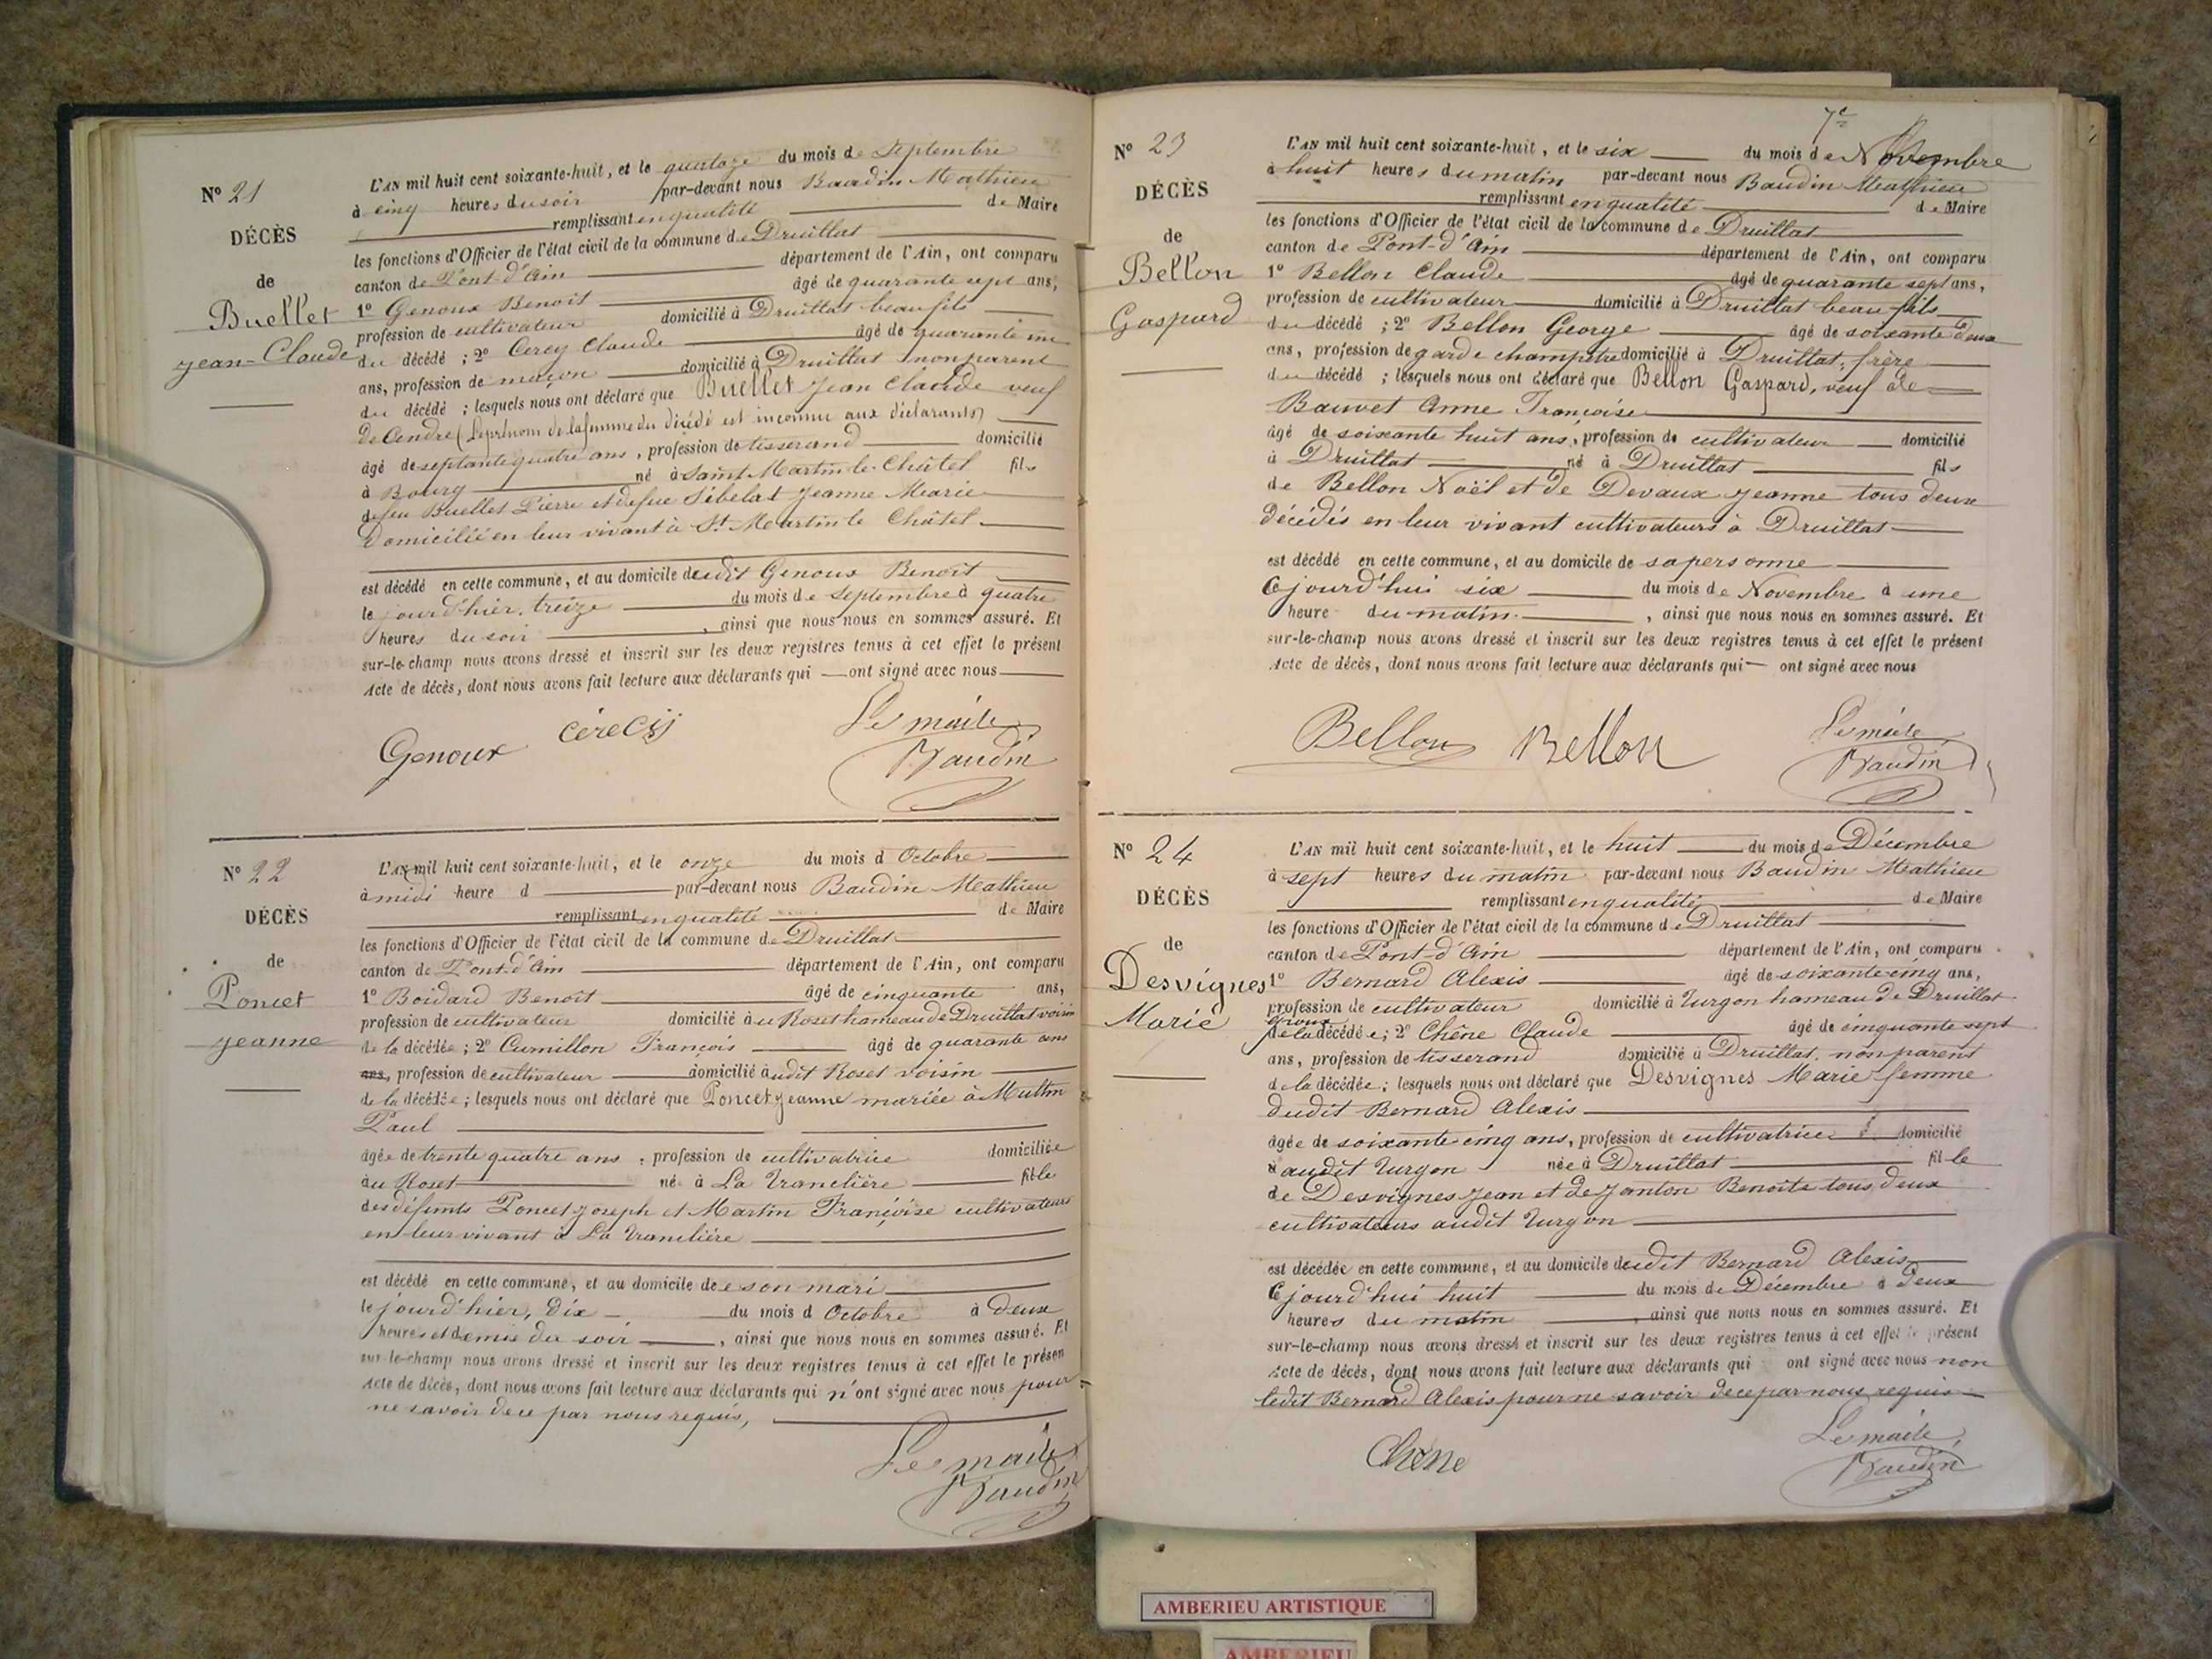 N° 21
DÉCÈS
de
Buellet
Jean-Claude
L'AN mil huit cent soixante-huit, et le quatorze du mois de Septembre
à cinq heures du soir par-devant nous Baudin Mathieu
remplissant en qualité de Maire
les fonctions d'Officier de l'état civil de la commune de Druillat
canton de Pont-d'Ain département de l'Ain, ont comparu
1° Genoux Benoit âgé de quarante sept ans,
profession de cultivateur domicilié à Druillat beau fils
du décédé ; 2° Cerey Claude âgé de quarante un
ans, profession de maçon domicilié à Druillat non parent
du décédé ; lesquels nous ont déclaré que Buellet Jean Claude veuf
de Cendre (le prénom de la femme du décédé est inconnu aux déclarants)
âgé de septante quatre ans, profession de tisserand domicilié
à Bourg né à Saint-Martin-le-Châtel fils
de feu Buellet Pierre et de feue Sibelat Jeanne Marie
domicilié en leur vivant à St Martin le Châtel
est décédé en cette commune, et au domicile dudit Genoux Benoit
le jour d'hier, treize du mois de Septembre à quatre
heures du soir, ainsi que nous nous en sommes assuré. Et
sur-le-champ nous avons dressé et inscrit sur les deux registres tenus à cet effet le présent
Acte de décès, dont nous avons fait lecture aux déclarants qui ont signé avec nous
Genoux Cerecij Le maire
Baudin
N° 22
DÉCÈS
de
Poncet
Jeanne
L'AN mil huit cent soixante-huit, et le onze du mois d Octobre
à midi heure d par-devant nous Baudin Mathieu
remplissant en qualité de Maire
les fonctions d'Officier de l'état civil de la commune de Druillat
canton de Pont-d'Ain département de l'Ain, ont comparu
1° Boidard Benoit âgé de cinquante ans,
profession de cultivateur domicilié au Roset hameau de Druillat voisin
de la décédée ; 2° Cumillon François âgé de quarante ans
ans, profession de cultivateur domicilié audit Roset voisin
de la décédée ; lesquels nous ont déclaré que Poncet Jeanne mariée à Multin
Paul
âgée de trente quatre ans, profession de cultivatrice domiciliée
au Roset née à La Tranclière fille
des défunts Poncet Joseph et Martin Françoise cultivateurs
en leur vivant à La Tranclière
est décédé en cette commune, et au domicile de son mari
le jour d'hier, dix du mois d Octobre à deux
heures et demie du soir, ainsi que nous nous en sommes assuré. Et
sur-le-champ nous avons dressé et inscrit sur les deux registres tenus à cet effet le présen
Acte de décès, dont nous avons fait lecture aux déclarants qui n'ont signé avec nous pour
ne savoir de ce par nous requis,
Le maire
Baudin
7e
N° 23
DÉCÈS
de
Bellon
Gaspard
L'AN mil huit cent soixante-huit, et le six du mois de Novembre
à huit heures du matin par-devant nous Baudin Mathieu
remplissant en qualité de Maire
les fonctions d'Officier de l'état civil de la commune de Druillat
canton de Pont-d'Ain département de l'Ain, ont comparu
1° Bellon Claude âgé de quarante sept ans,
profession de cultivateur domicilié à Druillat beau fils
du décédé ; 2° Bellon George âgé de soixante deux
ans, profession de garde champêtre domicilié à Druillat, frère
du décédé ; lesquels nous ont déclaré que Bellon Gaspard, veuf de
Bauvet Anne Françoise
âgé de soixante huit ans, profession de cultivateur domicilié
à Druillat né à Druillat fils
de Bellon Noël et de Devaux Jeanne tous deux
décédés en leur vivant cultivateurs à Druillat
est décédé en cette commune, et au domicile de sa personne
Cejourd'hui six du mois de Novembre à une
heure du matin, ainsi que nous nous en sommes assuré. Et
sur-le-champ nous avons dressé et inscrit sur les deux registres tenus à cet effet le présent
Acte de décès, dont nous avons fait lecture aux déclarants qui ont signé avec nous
Bellon Bellon Le maire
Baudin
N° 24
DÉCÈS
de
Desvignes
Marie
L'AN mil huit cent soixante-huit, et le huit du mois de Décembre
à sept heures du matin par-devant nous Baudin Mathieu
remplissant en qualité de Maire
les fonctions d'Officier de l'état civil de la commune de Druillat
canton de Pont-d'Ain département de l'Ain, ont comparu
1° Bernard Alexis âgé de soixante cinq ans,
profession de cultivateur domicilié à Turgon hameau de Druillat
époux
de la décédée ; 2° Chêne Claude âgé de cinquante sept
ans, profession de tisserand domicilié à Druillat, non parent
de la décédée ; lesquels nous ont déclaré que Desvignes Marie femme
dudit Bernard Alexis
âgée de soixante cinq ans, profession de cultivatrice domicilié
audit Turgon née à Druillat fille
de Desvignes Jean et de Janton Benoite tous deux
cultivateurs audit Turgon
est décédée en cette commune, et au domicile dudit Bernard Alexis
Cejourd'hui huit du mois de Décembre à deux
heures du matin, ainsi que nous nous en sommes assuré. Et
sur-le-champ nous avons dressé et inscrit sur les deux registres tenus à cet effet le présent
Acte de décès, dont nous avons fait lecture aux déclarants qui ont signé avec nous non
ledit Bernard Alexis pour ne savoir de ce par nous requis
Chêne Le maire,
Baudin
AMBERIEU ARTISTIQUE
AMBERIEU